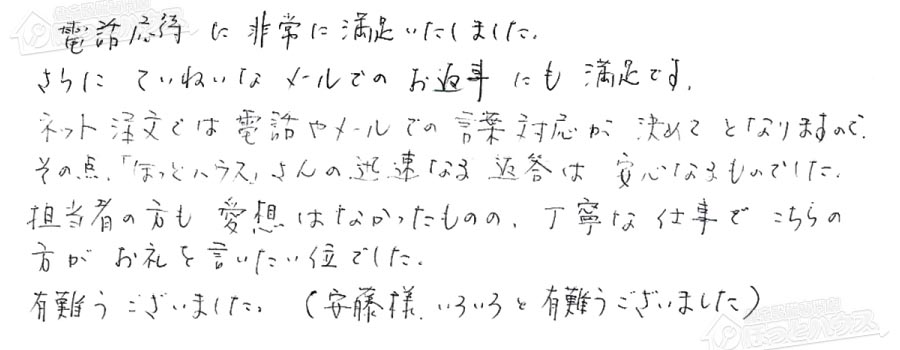 電話応待に非常に満足いたしました。
さらにていねいなメールでのお返事にも満足です。
ネット注文では電話やメールでの言葉対応が決めてとなりますので、
その点、「ほっとハウス」さんの迅速なる返答は安心なるものでした。
担当者の方も愛想はなかったものの、丁寧な仕事でこちらの
方がお礼を言いたい位でした。
有難うございました。(安藤様、いろいろと有難うございました)
ほっとハウス